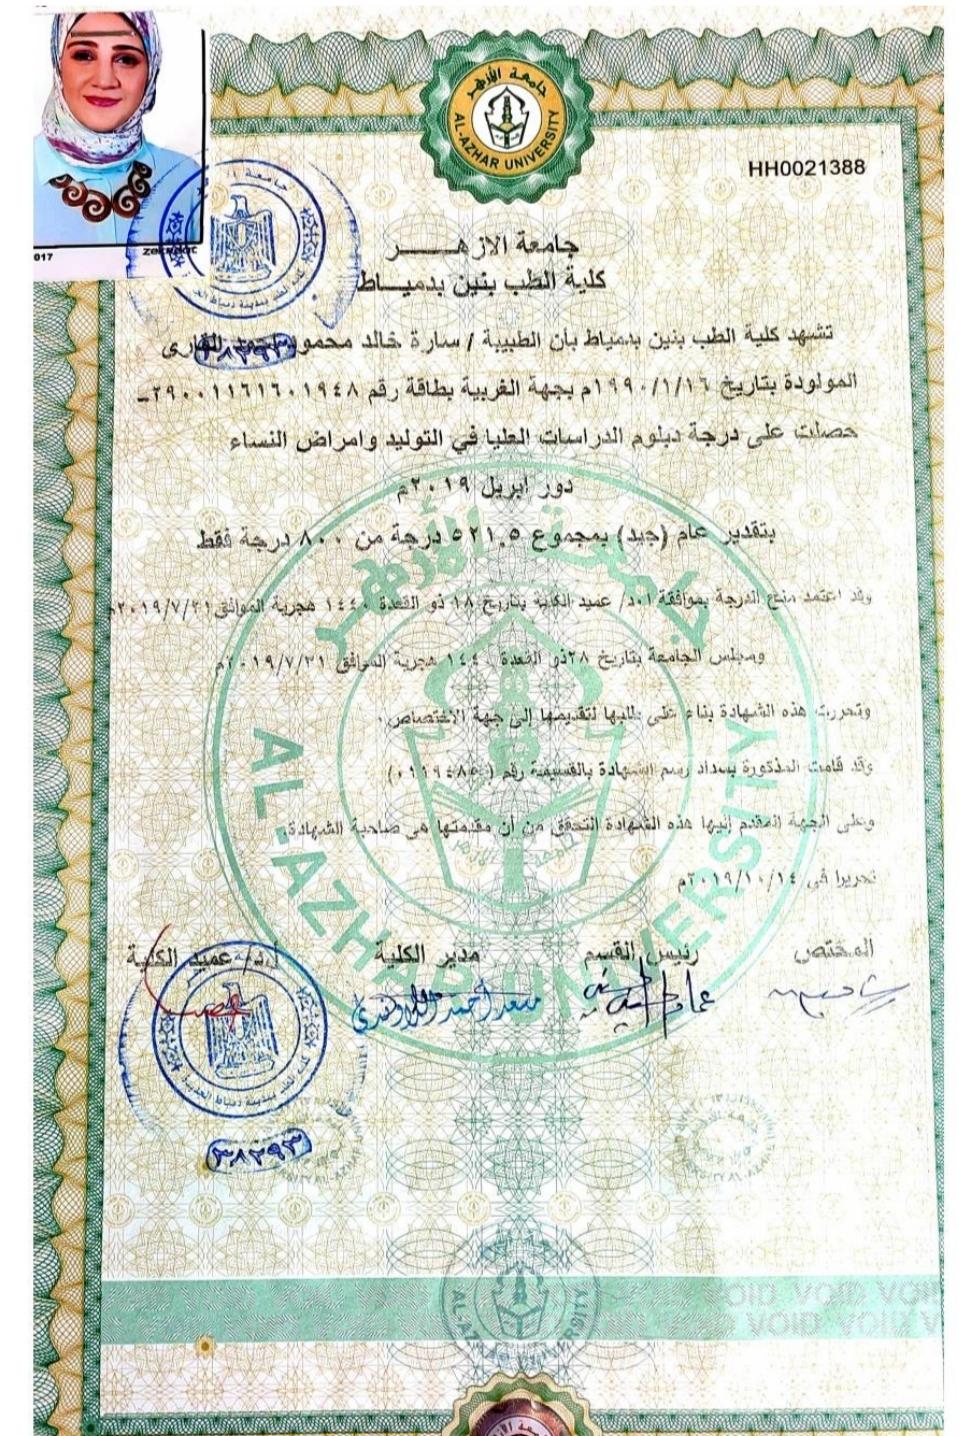 جامعة الأزهر
AL-AZHAR UNIVERSITY
HH0021388
2017
جامعة الازهـــــر
كلية الطب بنين بدميـــاط
تشهد كلية الطب بنين بدمياط بأن الطبيبة / سارة خالد محمود القارى
٣٨٢٩٣
المولودة بتاريخ ١٩٩٠/١/١٦م بجهة الغربية بطاقة رقم ٢٩٠٠١١٦١٦٠١٩٤٨ـ
حصلت على درجة دبلوم الدراسات العليا في التوليد وامراض النساء
دور ابريل ٢٠١٩م
بتقدير عام (جيد) بمجموع ٥٢١,٥ درجة من ٨٠٠ درجة فقط
وقد اعتمد منح الدرجة بموافقة ا.د/ عميد الكلية بتاريخ ١٨ ذو القعدة ١٤٤٠ هجرية الموافق ٢٠١٩/٧/٢١م
ومجلس الجامعة بتاريخ ٢٨ذو القعدة ١٤٤٠ هجرية الموافق ٢٠١٩/٧/٣١م
وتحررت هذه الشهادة بناء على طلبها لتقديمها إلى جهة الاختصاص.
وقد قامت المذكورة بسداد رسم الشهادة بالقسيمة رقم
وعلى الجهة المقدم إليها هذه الشهادة التحقق من أن مقدمتها هى صاحبة الشهادة.
تحريرا فى ٢٠١٩/١٠/١٤م
المختص رئيس القسم مدير الكلية ا.د/ عميد الكلية
٣٨٢٩٣
جامعة الأزهر
AL-AZHAR UNIVERSITY
VOID VOID VOID
VOID VOID VOID
AL-AZHAR UNIVERSITY